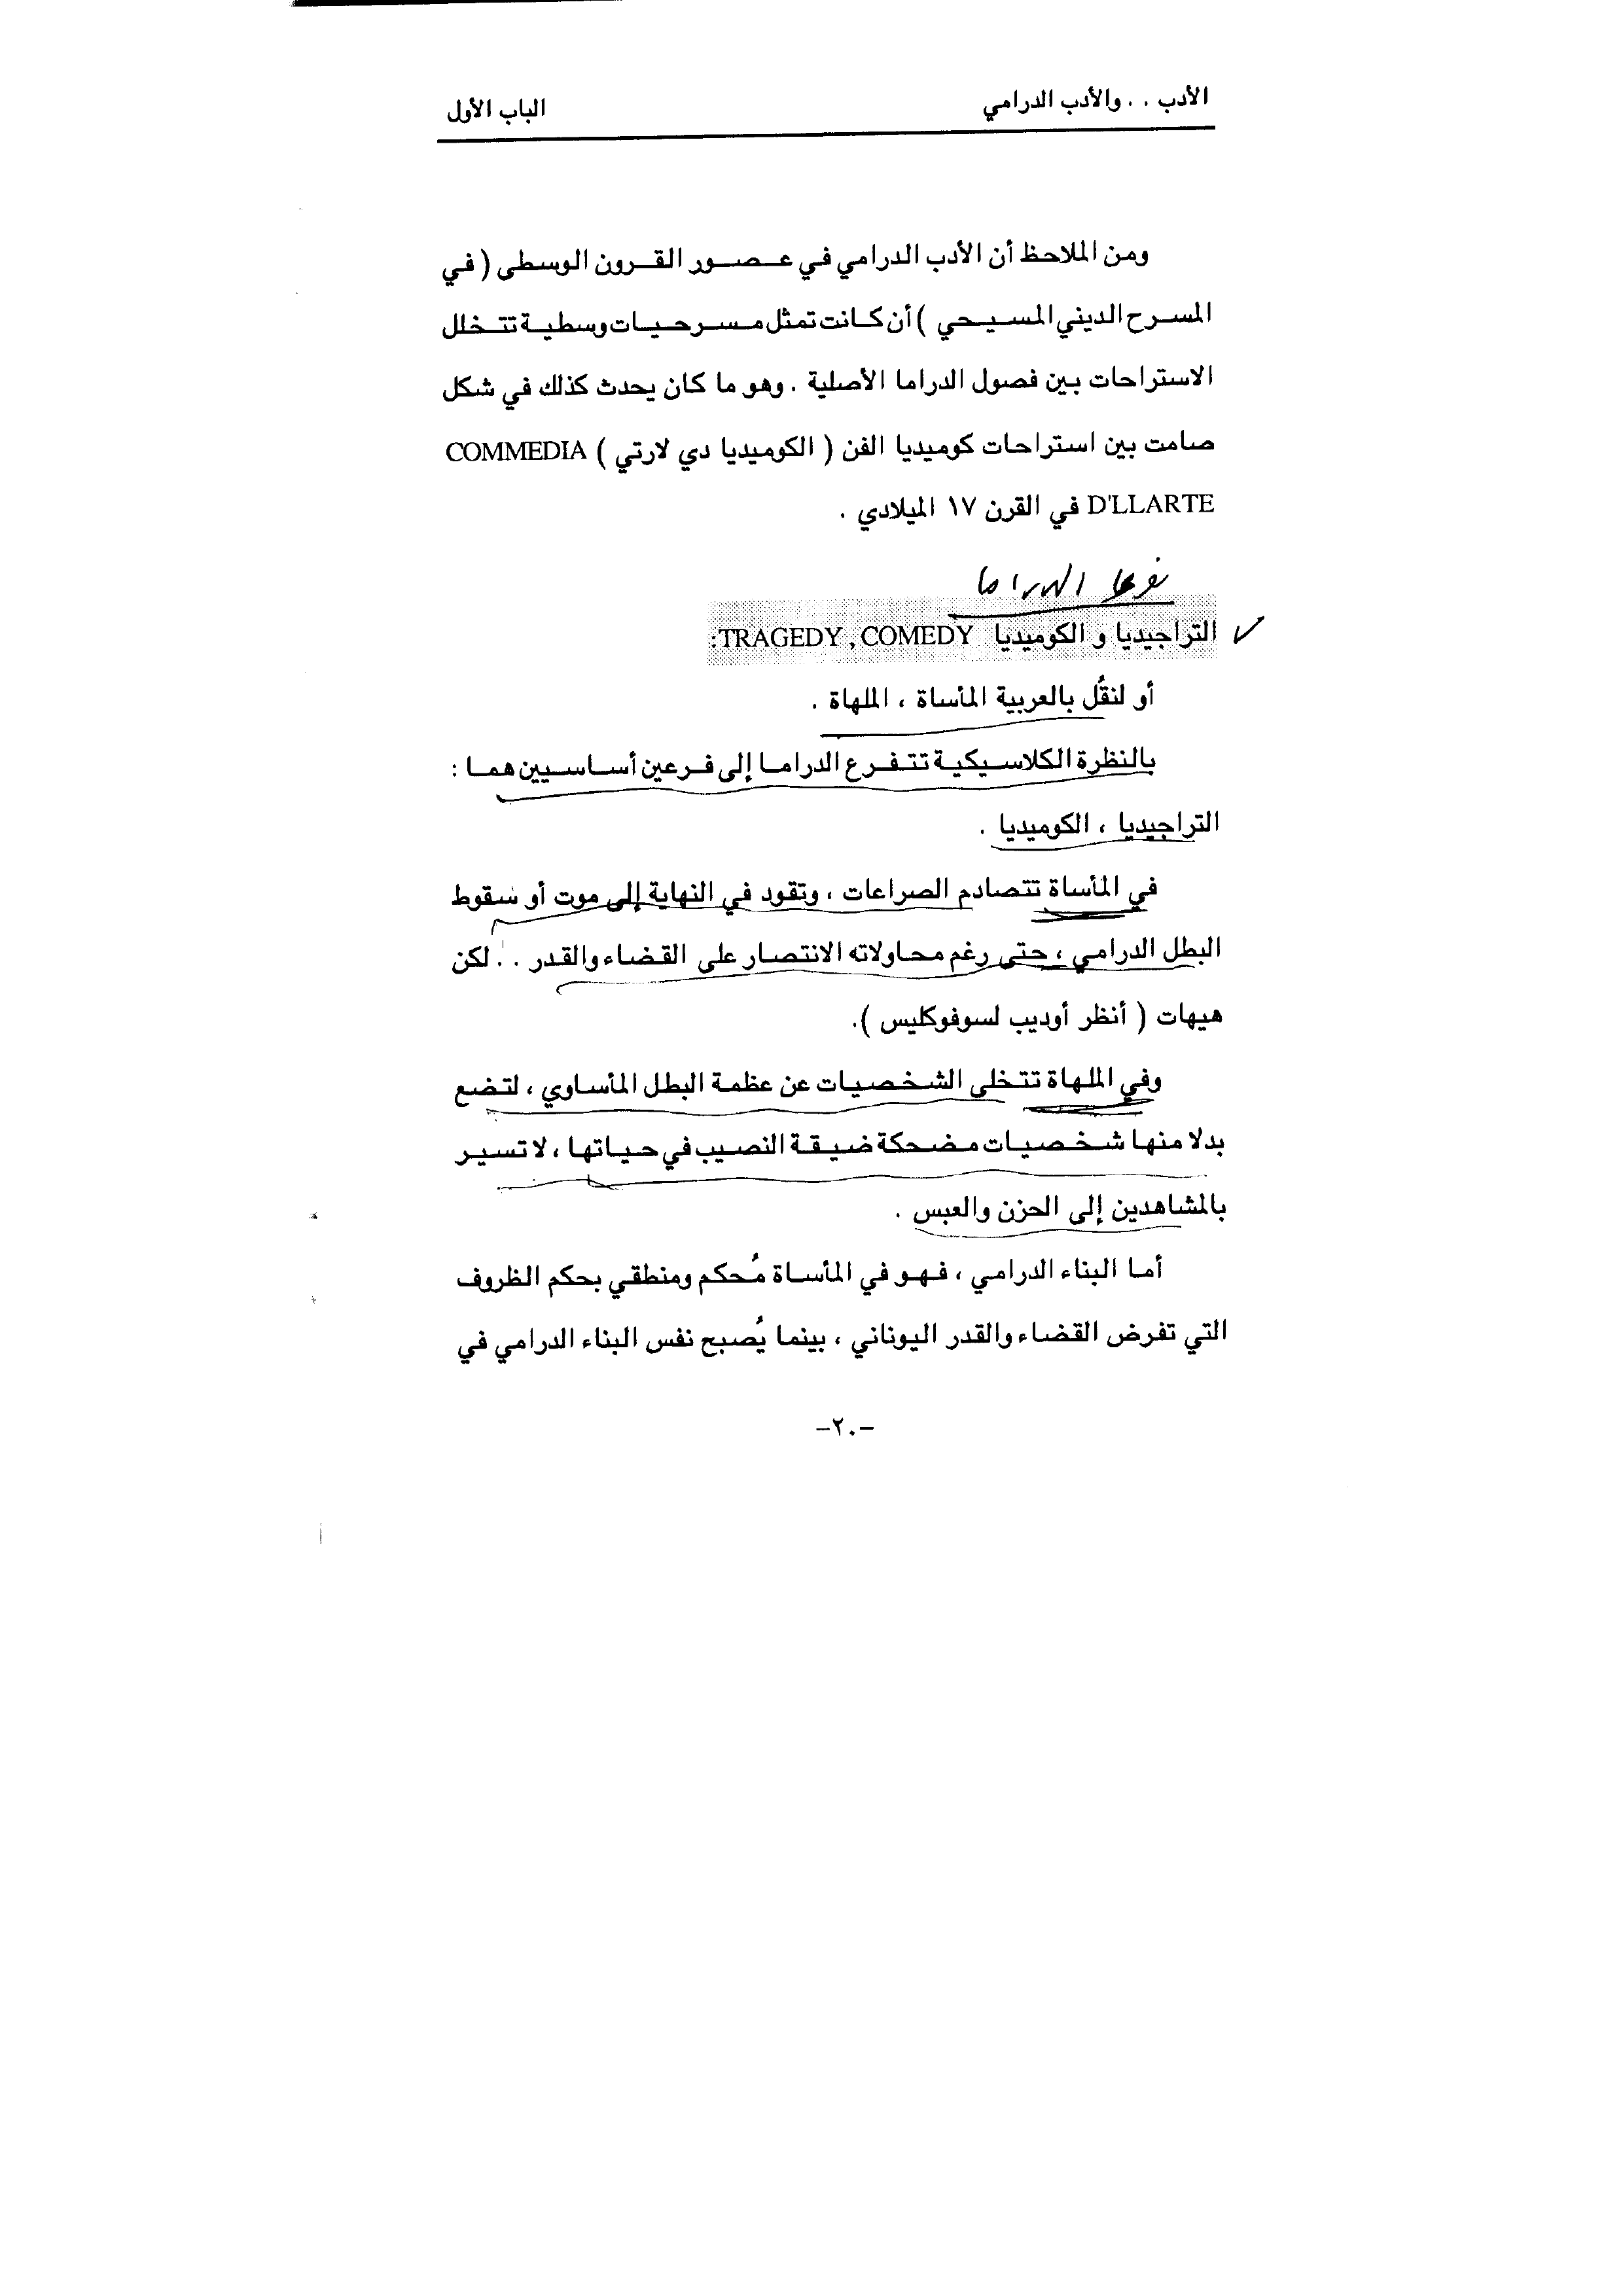 الأدب . . والأدب الدرامي الباب الأول
ومن الملاحظ أن الأدب الدرامي في عصور القرون الوسطى ( في
المسرح الديني المسيحي ) أن كانت تمثل مسرحيات وسطية تتخلل
الاستراحات بين فصول الدراما الأصلية . وهو ما كان يحدث كذلك في شكل
صامت بين استراحات كوميديا الفن ( الكوميديا دي لارتي ) COMMEDIA
D'LLARTE في القرن ١٧ الميلادي .
الدراما
التراجيديا و الكوميديا TRAGEDY , COMEDY:
أو لنقُل بالعربية المأساة ، الملهاة .
بالنظرة الكلاسيكية تتفرع الدراما إلى فرعين أساسيين هما :
التراجيديا ، الكوميديا .
في المأساة تتصادم الصراعات ، وتقود في النهاية إلى موت أو سقوط
البطل الدرامي ، حتى رغم محاولاته الانتصار على القضاء والقدر . . لكن
هيهات ( أنظر أوديب لسوفوكليس ).
وفي الملهاة تتخلى الشخصيات عن عظمة البطل المأساوي ، لتضع
بدلا منها شخصيات مضحكة ضيقة النصيب في حياتها ، لا تسير
بالمشاهدين إلى الحزن والعبس .
أما البناء الدرامي ، فهو في المأساة مُحكم ومنطقي بحكم الظروف
التي تفرض القضاء والقدر اليوناني ، بينما يُصبح نفس البناء الدرامي في
-٢٠-